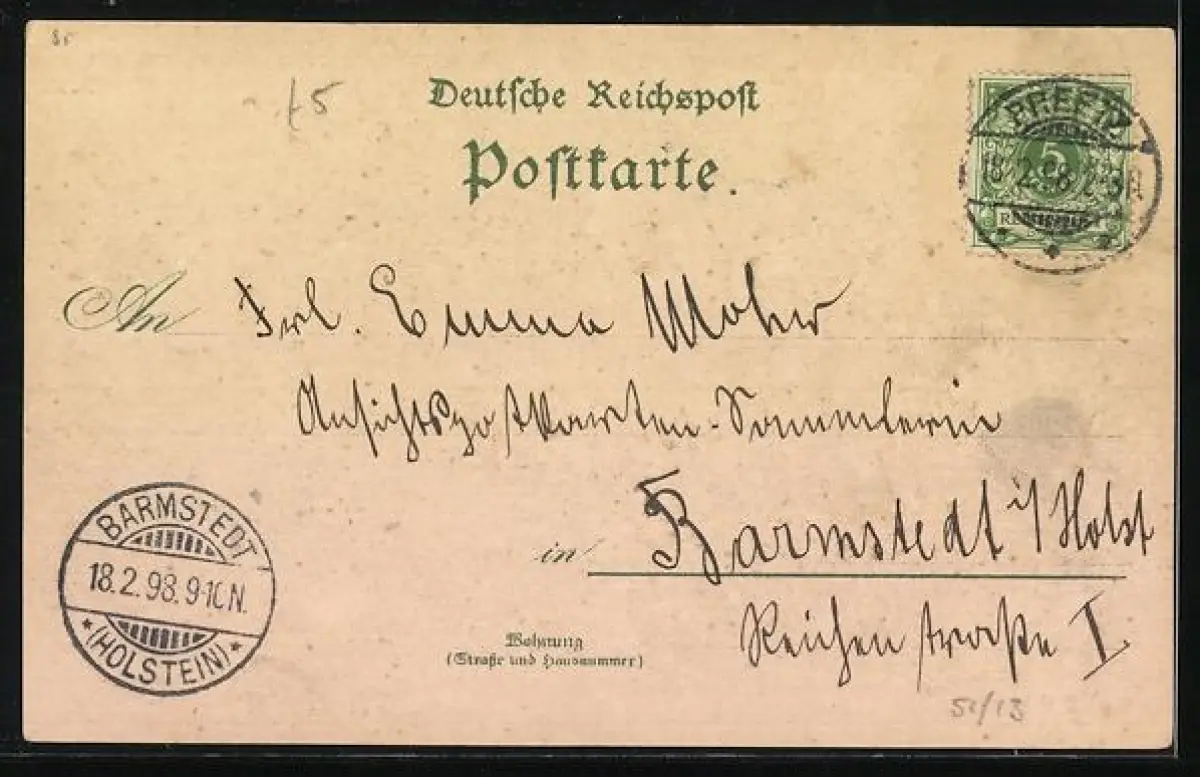 Deutsche Reichspost
Postkarte.
PREETZ
18.2.98 2-3N
5
REICHSPOST
An Frl. Emma Mohr
Ansichtspostkarten-Sammlerin
in Barmstedt i/Holst
Wohnung
(Straße und Hausnummer)
Reichenstraße I.
BARMSTEDT
18.2.98.9-10N.
*(HOLSTEIN)*
t5
51/13